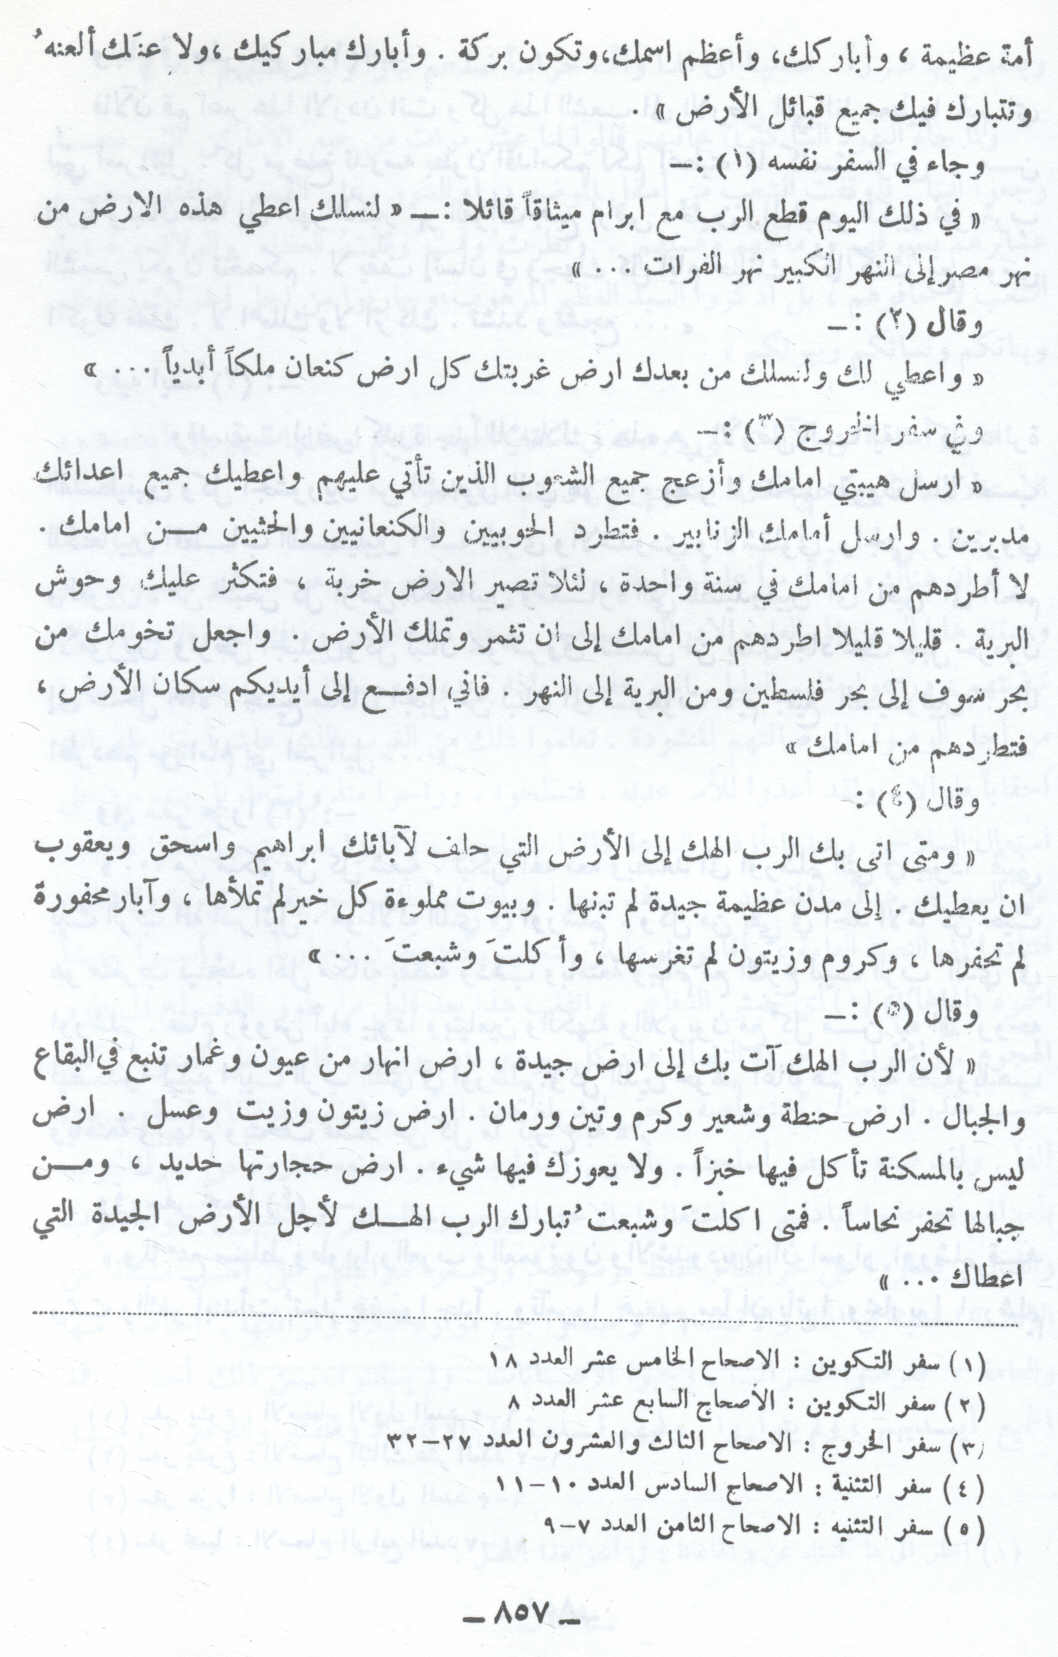 أمة عظيمة ، وأباركك، وأعظم اسمك،وتكون بركة . وأبارك مباركيك ،ولاعنك ألعنهُ
وتتبارك فيك جميع قبائل الأرض » .
وجاء في السفر نفسه (١) :ـ
« في ذلك اليوم قطع الرب مع ابرام ميثاقاً قائلا :ـ « لنسلك اعطي هذه الارض من
نهر مصر إلى النهر الكبير نهر الفرات ... »
وقال (٢) :ـ
« واعطي لك ولنسلك من بعدك ارض غربتك كل ارض كنعان ملكاً أبدياً ... »
وفي سفر الخروج (٣) :ـ
« ارسل هيبتي امامك وأزعج جميع الشعوب الذين تأتي عليهم واعطيك جميع اعدائك
مدبرين . وارسل أمامك الزنابير . فتطرد الحويين والكنعانيين والحثيين مـن امامك .
لا أطردهم من امامك في سنة واحدة ، لئلا تصير الارض خربة ، فتكثر عليك وحوش
البرية . قليلا قليلا اطردهم من امامك إلى ان تثمر وتملك الأرض . واجعل تخومك من
بحر سوف إلى بحر فلسطين ومن البرية إلى النهر . فاني ادفـع إلى أيديكم سكان الأرض ،
فتطردهم من امامك »
وقال (٤) :ـ
« ومتى اتى بك الرب الهك إلى الأرض التي حلف لآبائك ابراهيم واسحق ويعقوب
ان يعطيك . إلى مدن عظيمة جيدة لم تبنها . وبيوت مملوءة كل خير لم تملأها ، وآبار محفورة
لم تحفرها ، وكروم وزيتون لم تغرسها ، وأكلتَ وشبعتَ ... »
وقال (٥) :ـ
« لأن الرب الهك آت بك إلى ارض جيدة ، ارض انهار من عيون وغمار تنبع في البقاع
والجبال . ارض حنطة وشعير وكرم وتين ورمان . ارض زيتون وزيت وعسل . ارض
ليس بالمسكنة تأكل فيها خبزاً . ولا يعوزك فيها شيء . ارض حجارتها حديد ، ومـن
جبالها تحفر نحاساً . فمتى اكلتَ وشبعتَ تبارك الرب الهـك لأجل الأرض الجيدة التي
اعطاك ... »
(١) سفر التكوين : الاصحاح الخامس عشر العدد ١٨
(٢) سفر التكوين : الأصحاح السابع عشر العدد ٨
(٣) سفر الخروج : الاصحاح الثالث والعشرون العدد ٢٧ـ٣٢
(٤) سفر التثنية : الاصحاح السادس العدد ١٠ـ١١
(٥) سفر التثنيه : الاصحاح الثامن العدد ٧ـ٩
ـ ٨٥٧ ـ